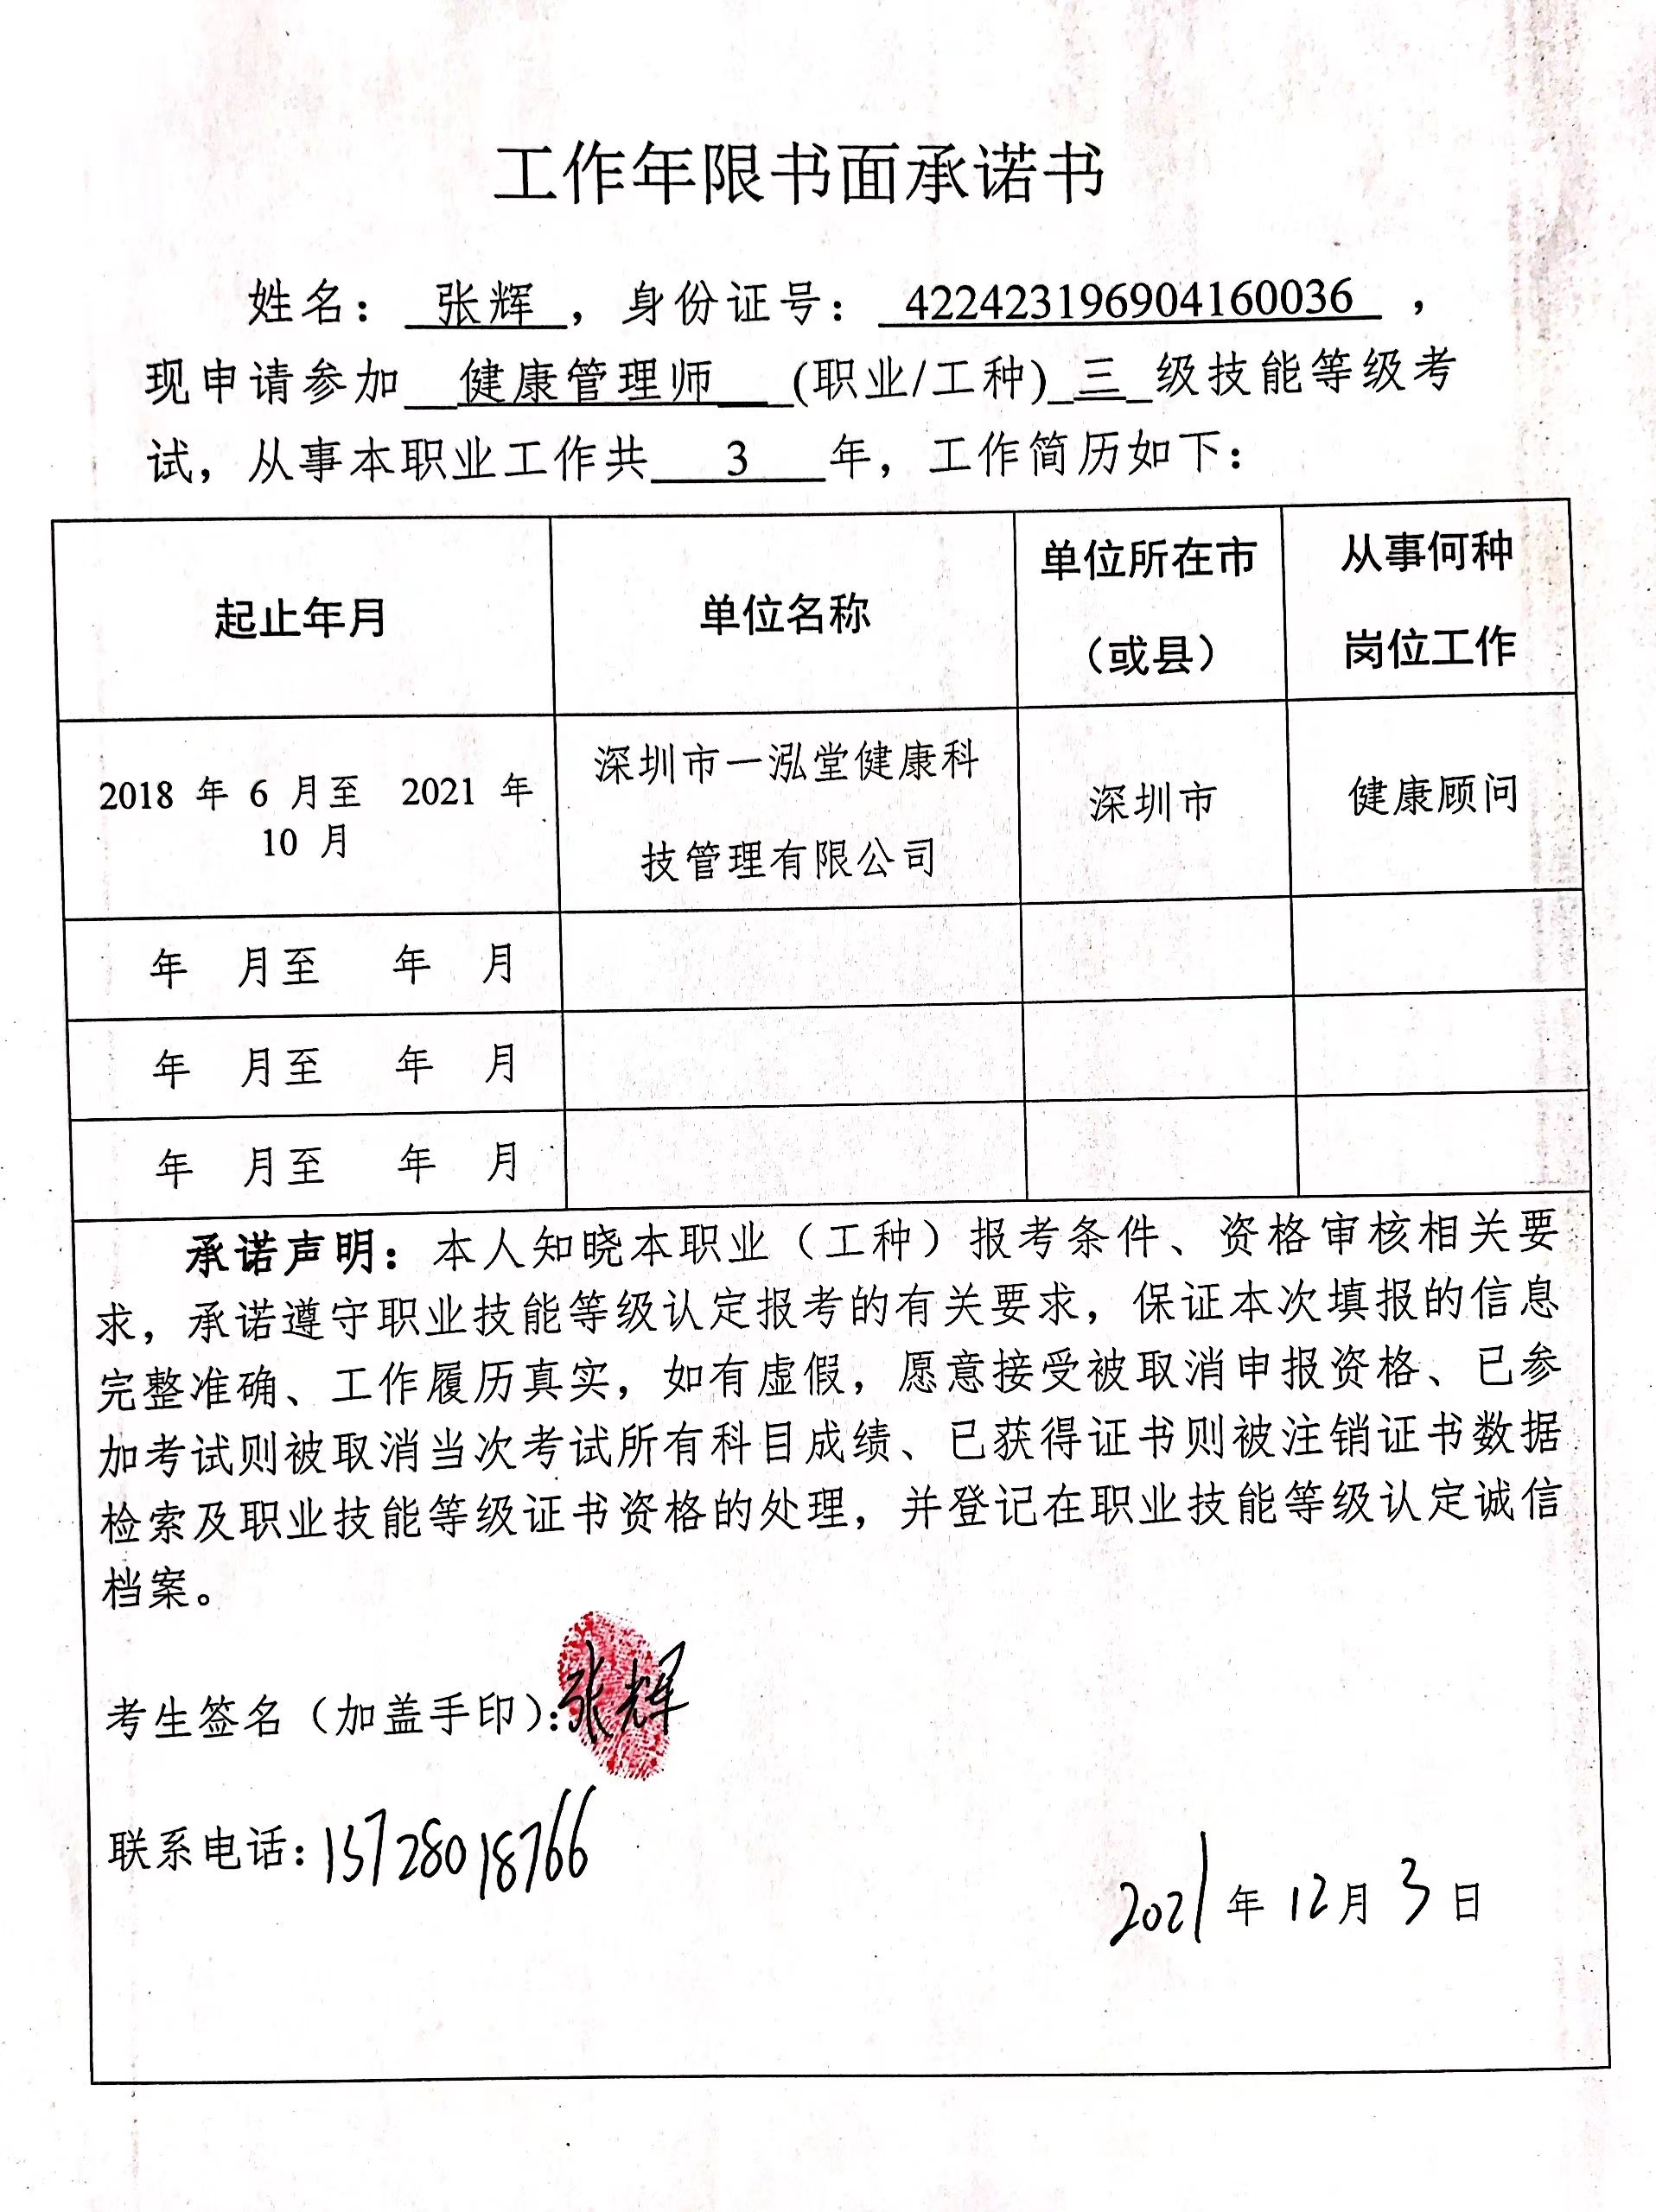 工作年限书面承诺书
姓名：张辉，身份证号：422423196904160036，
现申请参加 健康管理师 (职业/工种) 三 级技能等级考
试，从事本职业工作共 3 年，工作简历如下：
起止年月 单位名称 单位所在市（或县） 从事何种岗位工作
2018 年 6 月至 2021 年
10 月
深圳市一泓堂健康科
技管理有限公司
深圳市
健康顾问
年 月至 年 月
年 月至 年 月
年 月至 年 月
承诺声明：本人知晓本职业（工种）报考条件、资格审核相关要
求，承诺遵守职业技能等级认定报考的有关要求，保证本次填报的信息
完整准确、工作履历真实，如有虚假，愿意接受被取消申报资格、已参
加考试则被取消当次考试所有科目成绩、已获得证书则被注销证书数据
检索及职业技能等级证书资格的处理，并登记在职业技能等级认定诚信
档案。
考生签名（加盖手印）：张辉
联系电话：13728018766
2021年12月3日